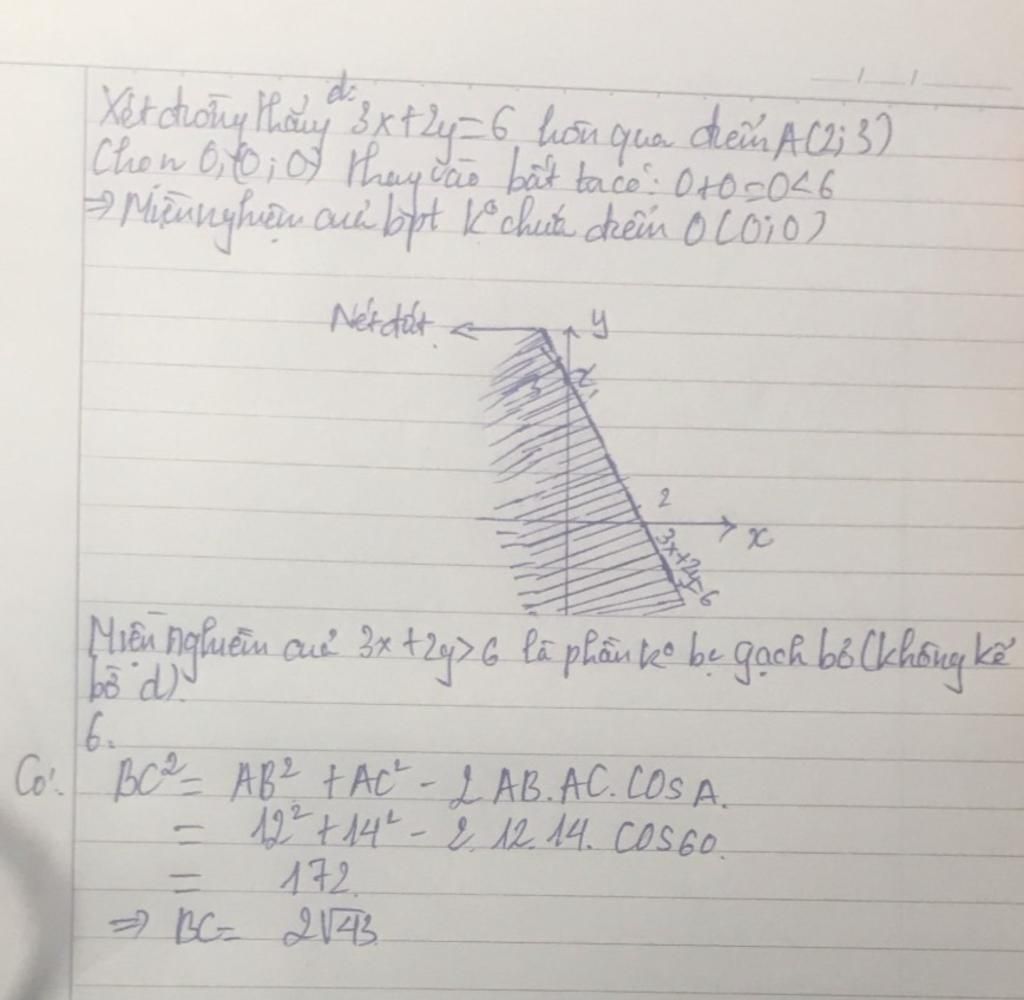 d:
Xét đường thẳng 3x+2y=6 luôn qua điểm A(2;3)
Chọn O(0;0) thay vào bất ta có: 0+0=0<6
=> Miền nghiệm của bpt k° chứa điểm O(0;0)
Nét đứt.
y
3
2
x
3x+2y=6
Miền nghiệm của 3x+2y>6 là phần k° bị gạch bỏ (không kể
bờ d)
6.
Có: BC² = AB² + AC² - 2 AB.AC.COS A.
= 12² + 14² - 2.12.14. COS60.
= 172.
=> BC = 2√43.